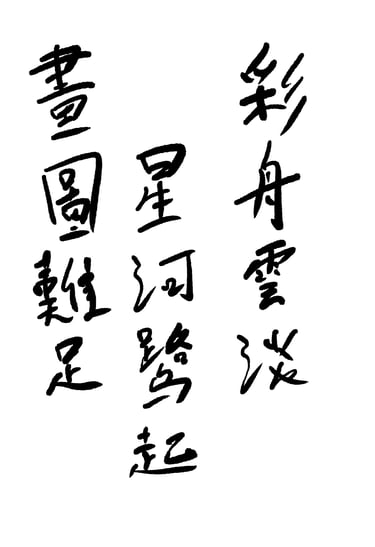 彩舟雲淡
星河鹭起
畫圖難足